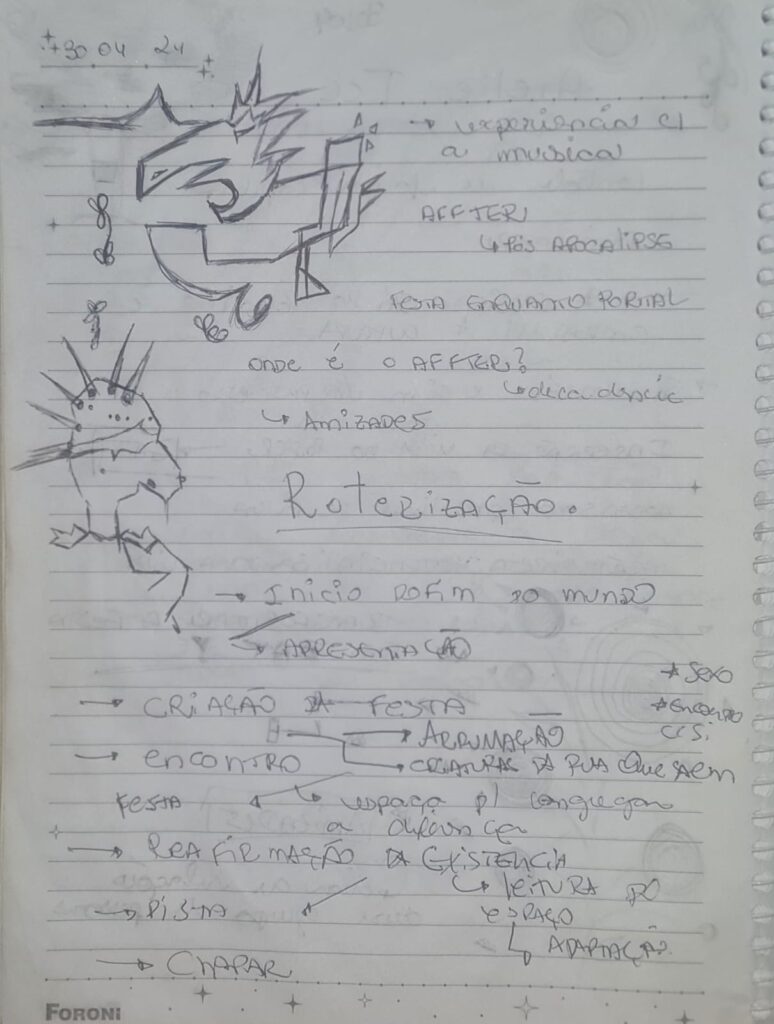 30 04 24
→ experiencia c/
a musica
AFFTER
↳ Pós APOCALIPSE
FESTA ENQUANTO PORTAL
onde é o AFFTER?
↳ decadencia
↳ AMIZADES
RoteRIZAÇÃO.
→ Inicio DO FIM DO MUNDO
↳ APRESENTAÇÃO
→ SEXO
→ CRIAÇÃO DA FESTA
→ Encontro
C/ Si
→ ARRUMAÇÃO
→ encontro
→ CRIATURAS DA RUA QUE SAEM
FESTA
↳ espaço p/ congregar
a diferença
→ REAFIRMAÇÃO DA EXISTENCIA
↳ LEITURA DO
ESPAÇO
→ PISTA
↳ ADAPTAÇÃO
→ CHAPAR
FORONI